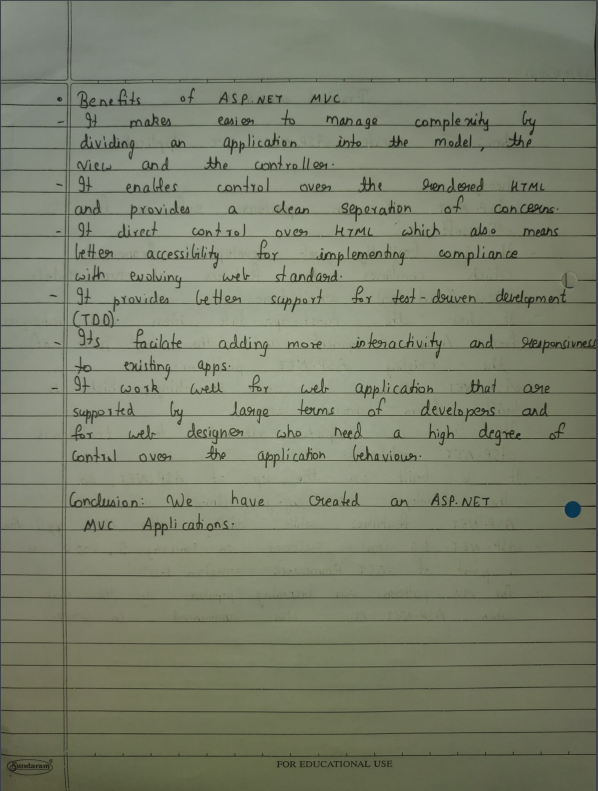 • Benefits of ASP.NET MVC
- It makes easier to manage complexity by
dividing an application into the model, the
view and the controller.
- It enables control over the rendered HTML
and provides a clean seperation of concerns.
- It direct control over HTML which also means
better accessibility for implementing compliance
with evolving web standard.
- It provides better support for test-driven development
(TDD).
- Its facilate adding more interactivity and responsivness
to existing apps.
- It work well for web application that are
supported by large terms of developers and
for web designer who need a high degree of
control over the application behaviour.
Conclusion: We have created an ASP.NET
MVC Applications.
Sundaram
FOR EDUCATIONAL USE